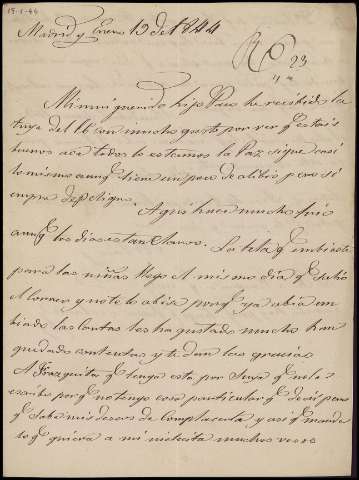 19-1-44
Madrid y Enero 19 de 1844
R 23
Mi muy querido hijo Paco he recibido la
tuya del 16 con mucho gusto por ver q estais
buenos acá todos lo estamos la Paz sigue casi
lo mismo aunq tiene un poco de alibio pero si
empre de peligro.
Aqui hace mucho frio
aunq los dias estan claros. La tela q embiaste
para las niñas llego el mismo dia q salio
el correo y no te lo abise porq ya abia em
biado las cartas les ha gustado mucho han
quedado contentas y te dan las gracias
A Frazquita q tenga esta por suya q no le
escribo porq no tengo cosa particular q decir pero
q sabe mis deseos de complacerla y asi q mande
lo q quiera a mi nietecita muchos vesos